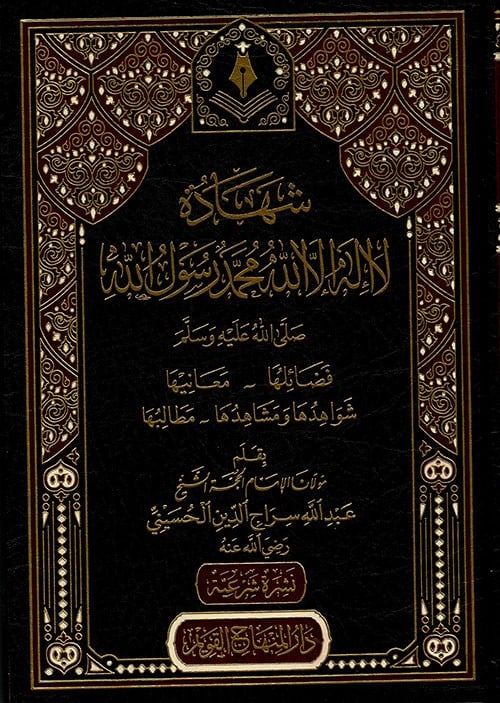 شَهَادَةُ
لَا إِلَهَ إِلَّا اللَّهُ مُحَمَّدٌ رَسُولُ اللَّهِ
صَلَّى اللَّهُ عَلَيْهِ وَسَلَّمَ
فَضَائِلُهَا - مَعَانِيهَا
شَوَاهِدُهَا وَمَشَاهِدُهَا - مَطَالِبُهَا
بِقَلَمِ
مولانا الإمام الحجة الشيخ
عَبْدِ اللَّهِ سِرَاجِ الدِّينِ الْحُسَيْنِيِّ
رَضِيَ اللَّهُ عَنْهُ
نَشْرَة شَرْعِيَّة
دَارُ الْمِنْهَاجِ الْقَوِيمِ